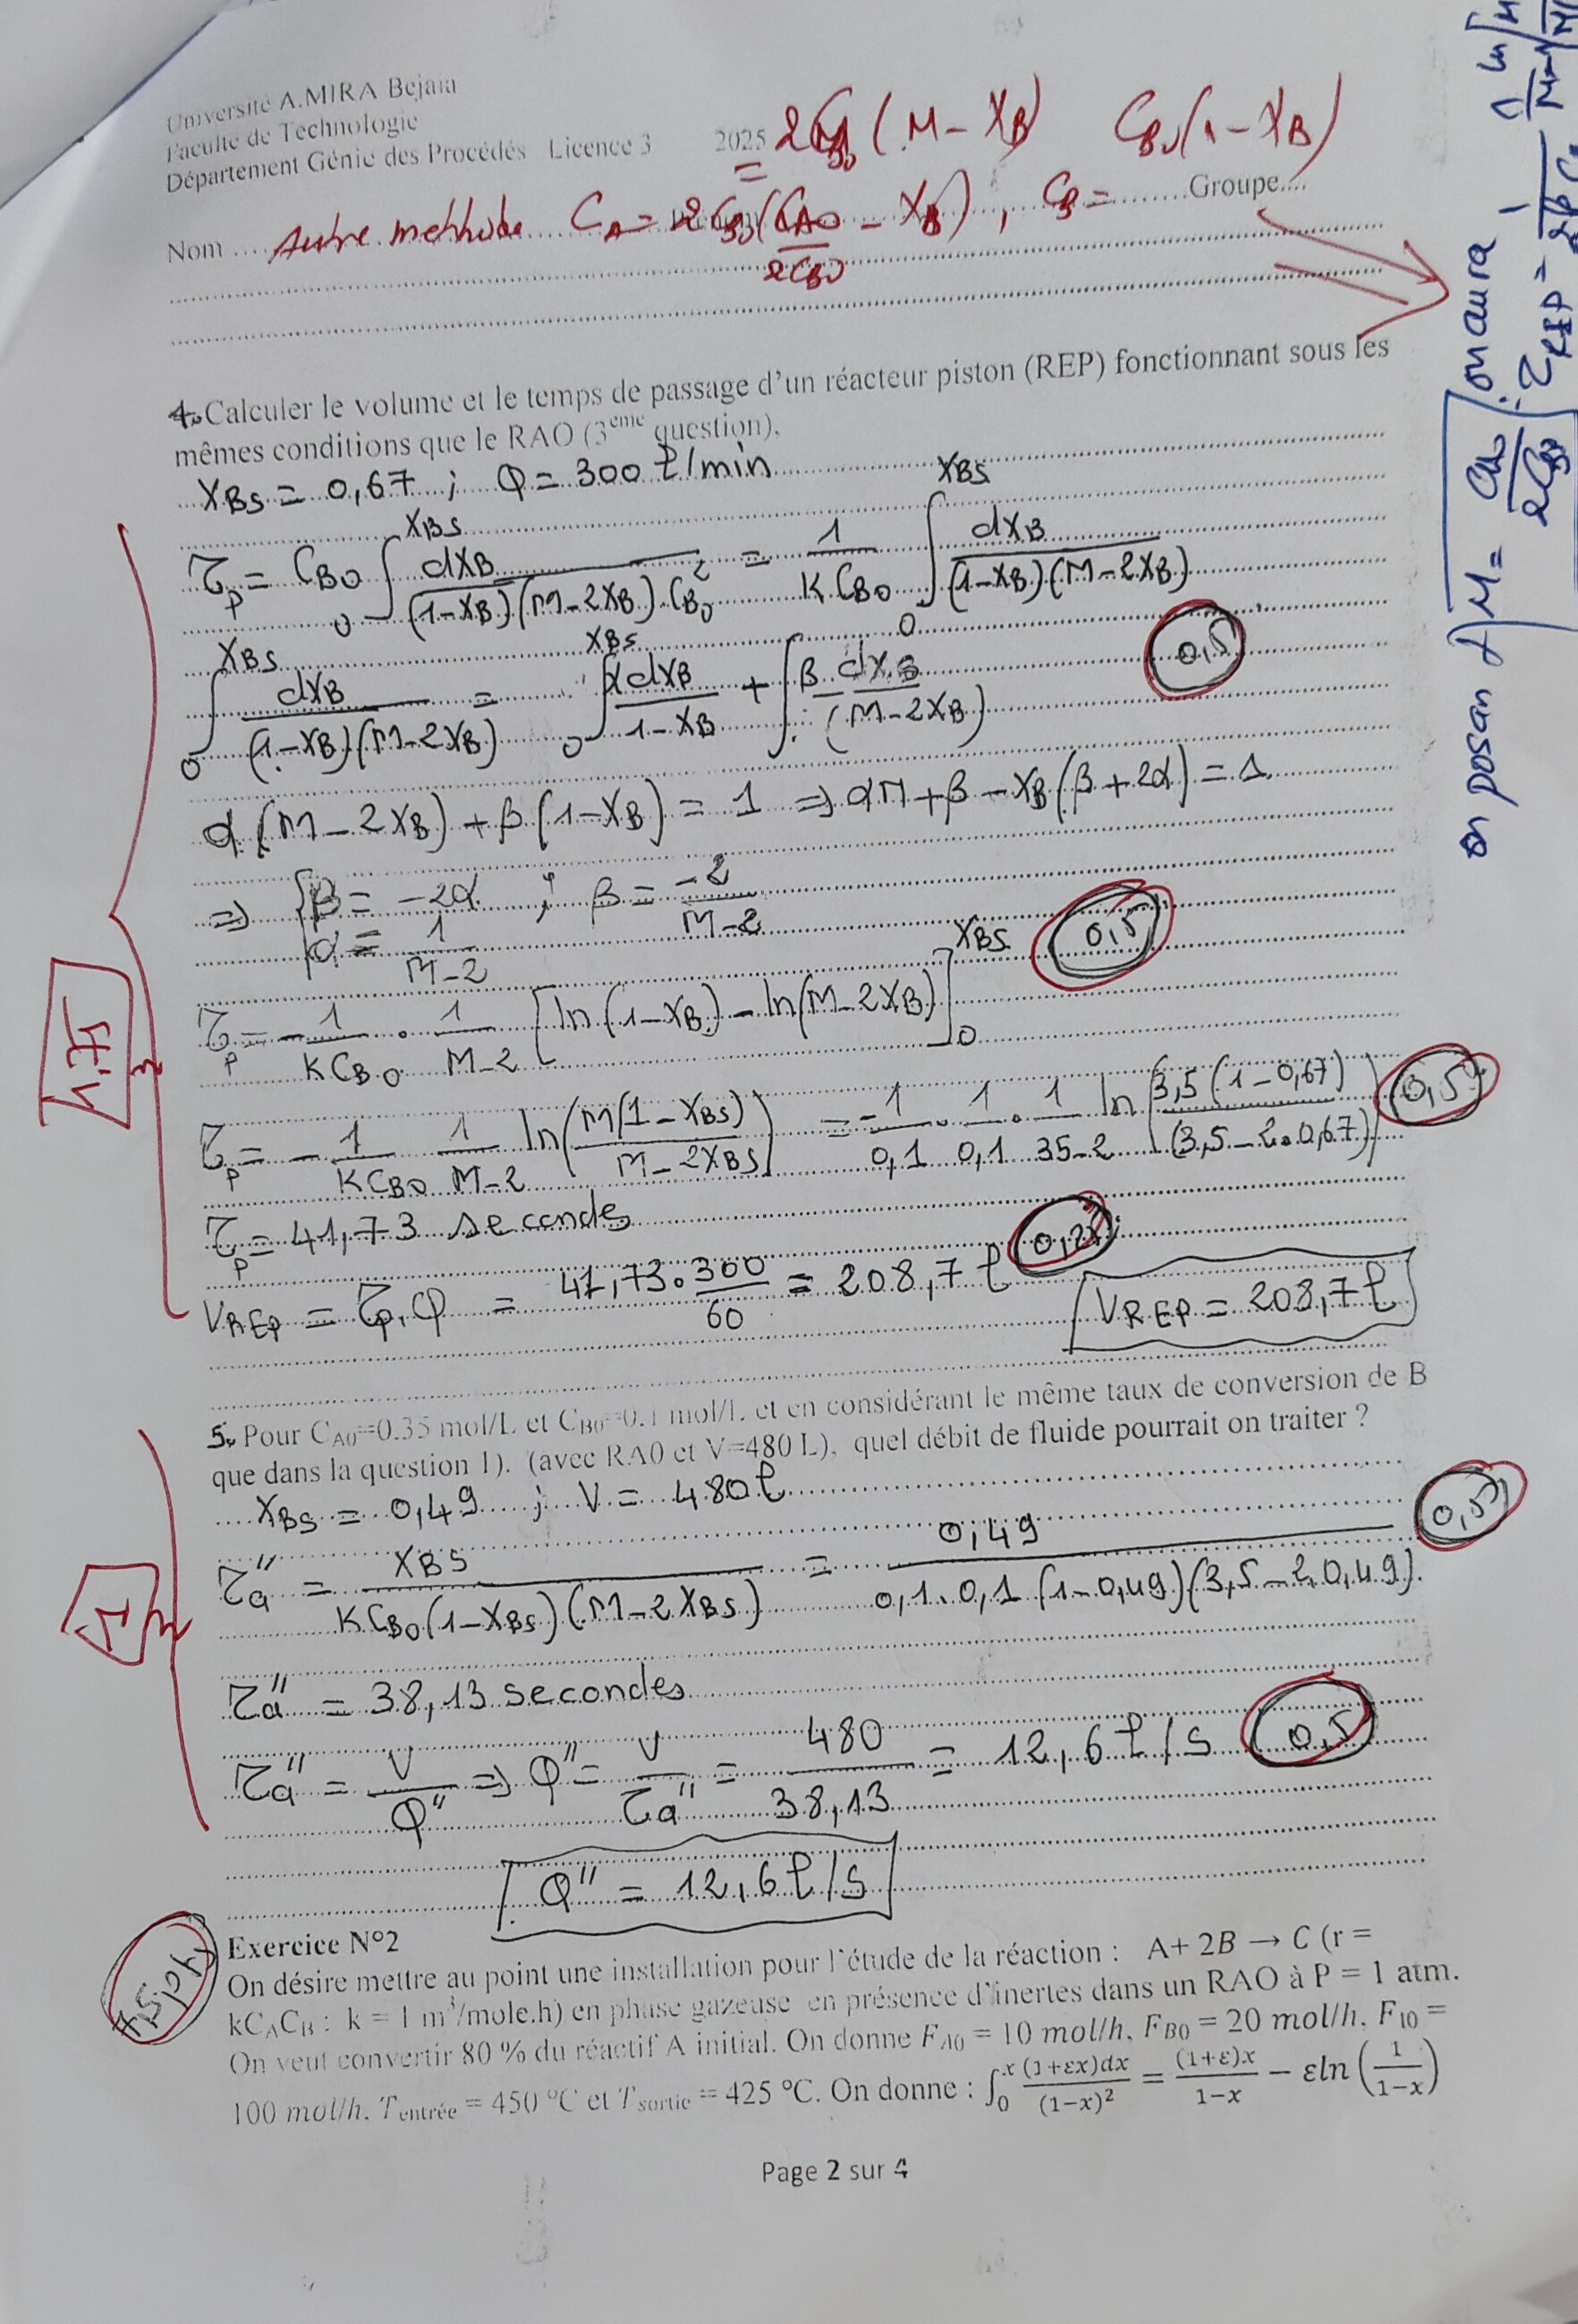 Université A.MIRA Bejaia
Faculté de Technologie
Département Génie des Procédés Licence 3 2025
= 2C_B0 (M - X_B) C_B0(1 - X_B)
Nom .... Autre methode C_A = 2C_B0(C_A0/2C_B0 - X_B), C_B = ........Groupe....
4. Calculer le volume et le temps de passage d'un réacteur piston (REP) fonctionnant sous les
mêmes conditions que le RAO (3eme question).
X_BS = 0,67 ; Q = 300 l/min
τ_p = C_B0 ∫_0^{X_BS} dX_B / (1-X_B)(M-2X_B).C_B0² = 1/KC_B0 ∫_0^{X_BS} dX_B / (1-X_B)(M-2X_B)
0,5
∫_0^{X_BS} dX_B / (1-X_B)(M-2X_B) = ∫_0^{X_BS} αdX_B / 1-X_B + ∫ β dX_B / (M-2X_B)
α(M-2X_B) + β(1-X_B) = 1 ⇒ αM + β - X_B(β+2α) = 1
⇒ { β = -2α ; β = -2/M-2
α = 1/M-2
0,5
τ_p = - 1/KC_B0 . 1/M-2 [ln(1-X_B) - ln(M-2X_B)]_0^{X_BS}
τ_p = - 1/KC_B0 1/M-2 ln(M(1-X_BS) / M-2X_BS) = -1/0,1 . 1/0,1 . 1/35-2 ln(3,5(1-0,67) / (3,5-2.0,67)) 0,5
τ_p = 41,73 secondes
V_REP = τ_p.Q = 41,73.300/60 = 208,7 l 0,25
V_REP = 208,7 l
1,75
5. Pour C_A0=0.35 mol/L et C_B0=0.1 mol/L et en considérant le même taux de conversion de B
que dans la question 1). (avec RA0 et V=480 L), quel débit de fluide pourrait on traiter ?
X_BS = 0,49 ; V = 480 l
τ_a'' = X_BS / KC_B0(1-X_BS)(M-2X_BS) = 0,49 / 0,1.0,1(1-0,49)(3,5-2.0,49) 0,5
τ_a'' = 38,13 secondes
τ_a'' = V/Q'' ⇒ Q'' = V/τ_a'' = 480/38,13 = 12,6 l/s 0,5
Q'' = 12,6 l/s
1
Exercice N°2
On désire mettre au point une installation pour l'étude de la réaction : A+ 2B → C (r =
kC_AC_B : k = 1 m³/mole.h) en phase gazeuse en présence d'inertes dans un RAO à P = 1 atm.
On veut convertir 80 % du réactif A initial. On donne F_A0 = 10 mol/h, F_B0 = 20 mol/h, F_I0 =
100 mol/h, T_entrée = 450 °C et T_sortie = 425 °C. On donne : ∫_0^x (1+εx)dx/(1-x)² = (1+ε)x/1-x - εln(1/1-x)
Page 2 sur 4
on posan M = C_A0/2C_B0
on aura
τ_REP =